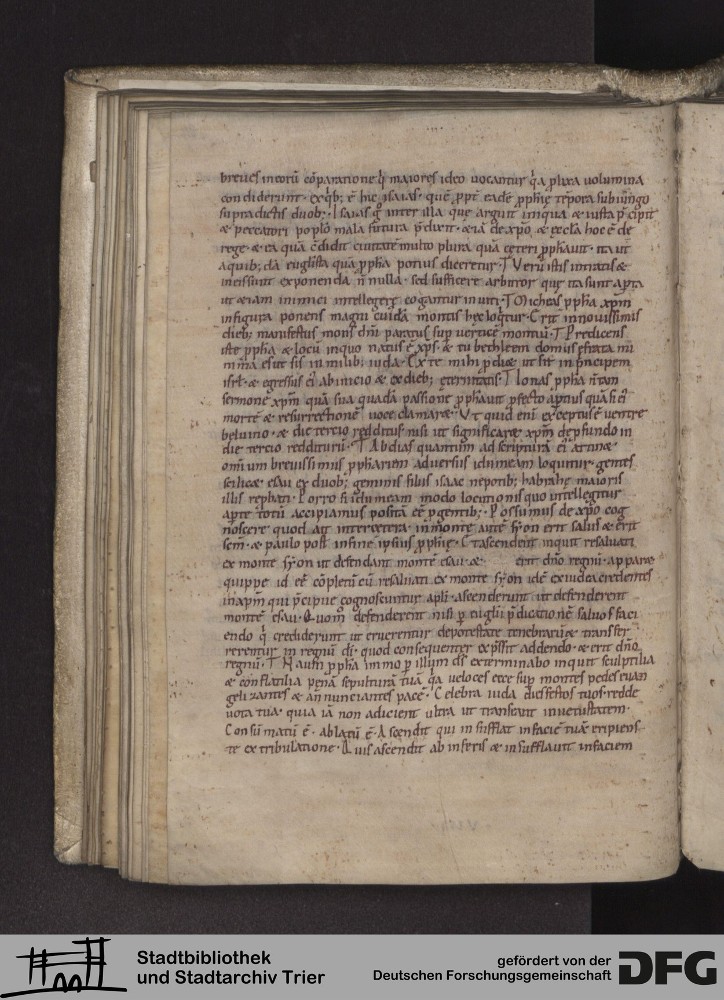 breues in coru cõparatione q maiores ideo uocantur qa plixa uolumina
condiderunt. ex qb; ẽ hic isaias. quẽ ppt eadẽ pphię tẽpora subiungo
supradictis duob;. Isaias g inter illa que arguit iniqua & iusta pcipit
& peccatori poplo mala futura pdixit. &iã de xpo & eccla hoc ẽ de
rege. & ea quã cdidit ciuitate multo plura quã ceteri pphauit. ita ut
a quib; dã euglista quã ppha potius diceretur.
ut &iam inimici intellegere cogantur inuiti. Micheas ppha xpm
in figura ponens magni cuidã montis hec loqtur. Erit in nouissimis
dieb; manifestus mons dni paratus sup uertice montiu. Predicens
iste ppha & locu in quo natus ẽ xps. & tu bethleem domus effrata
iuda. Ex te mihi pdiet ut sit in principem
isrl. & egressus ei ab inicio & ex dieb; eternitatis. Ionas ppha n tam
sermone xpm quã sua quadã passione pphauit pfecto aptius quã si ei
morte & resurrectionẽ uoce clamaret. Vt quid eni exceptus ẽ uentre
beluino. & die tercio redditus nisi ut significaret xpm de pfundo in
die tercio rediturũ. Abdias quantum ad scripturã ei attinet
omium breuissimus ppharum aduersus idumeam loquitur. gentes
scilicet esau ex duob; geminis filiis isaac nepotib; habrahę maioris
illis Porro si idumeam modo locutionis quo intellegitur
a parte totũ accipiamus positã eẽ p gentib;. Possumus de xpo cog
noscere quod ait inter cetera. in monte aute syon erit salus & erit
scm. & paulo post in fine ipsius pphię. Et ascendent inquit resaluati
ex monte syon ut defendant montẽ esau. & erit dno regnũ. apparet
quippe id eẽ cõpletũ cũ resaluati ex monte syon idẽ ex iudea credentes
in xpm qui pcipue cognoscuntur apli. ascenderunt ut defenderent
montẽ esau. Quom defenderent nisi p euglii pdicationẽ saluos faci
endo q crediderunt ut eruerentur de potestate tenebrarũ & transfer
rerentur in regnũ di. quod consequenter expssit addendo. & erit dno
regnũ. Naum ppha immo p illum ds exterminabo inquit sculptilia
& conflatilia ponã sepulturã tuã qa ueloces ecce sup montes pedes euan
gelizantis & annunciantes pacẽ. Celebra iuda dies festos tuos redde
uota tua. quia iã non adicient ultra ut transeant in uetustatem.
Consũmatũ ẽ. ablatũ ẽ. Ascendit qui insufflat in faciẽ tuã eripiens
te ex tribulatione. Quis ascendit ab inferis & insufflauit in faciem
Stadtbibliothek
und Stadtarchiv Trier
gefördert von der
Deutschen Forschungsgemeinschaft
DFG